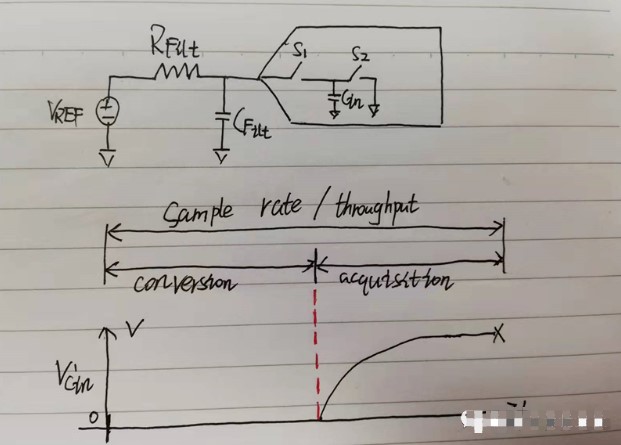 RFilt
S1
S2
VREF
Cin
CFilt
Sample rate / throughput
conversion
acquisition
V
VCin
0